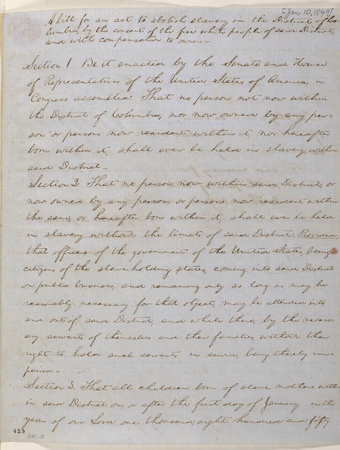 [Jan 10, 1849]
A bill for an act to abolish slavery in the District of Co-
lumbia, by the consent of the free white people of said District,
and with compensation to owners.
Section 1 Be it enacted by the Senate and House
of Representatives of the United States of America, in
Congress assembled: That no person not now within
the District of Columbia, nor now owned by any per-
son or persons now resident within it, nor hereafter
born within it, shall ever be held in slavery within
said District.
Section 2. That no person now within said District, or
now owned by any person or persons now resident within
the same, or hereafter born within it, shall ever be held
in slavery without the limits of said District: Provided,
that officers of the government of the United States, being
citizens of the slave-holding states, coming into said District
on public business, and remaining only so long as may be
reasonably necessary for that object, may be attended into
and out of, said District, and while there, by the necess-
ary servants of themselves and their families, without their
right to hold such servants in service, being thereby im-
paired.
Section 3. That all children born of slave mothers with-
in said District on, or after the first day of January in the
year of our Lord one thousand, eight hundred and fifty
423